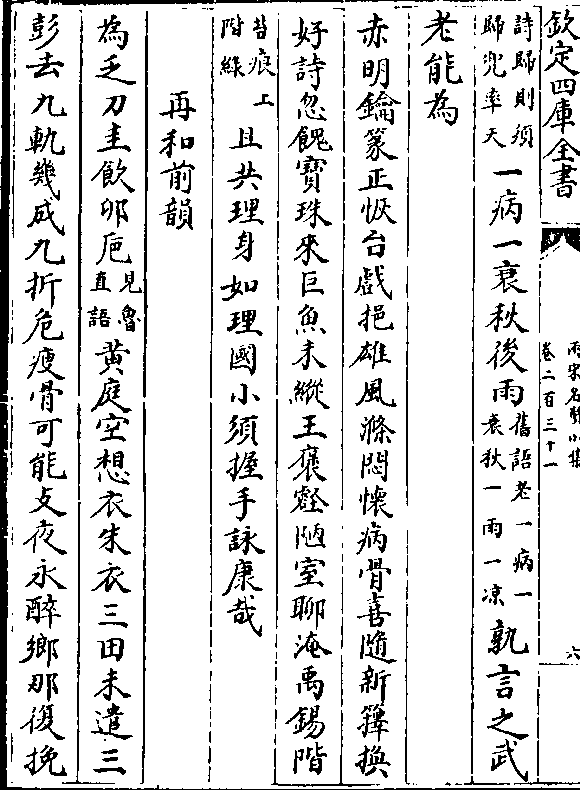 欽定四庫全書
兩宋名賢小集
卷二百三十一
六
詩歸則須
歸兜率天
一病一衰秋後雨
舊語老一病一
衰秋一雨一涼
孰言之武
老能為
赤明鑰篆正恢台戲挹雄風滌悶懷病骨喜隨新籜換
好詩忽餽寶珠來巨魚未縱王褒壑陋室聊淹禹錫階
苔痕上
階綠
且共理身如理國小須握手詠康哉
再和前韻
為乏刀圭飲卯巵
見魯
直語
黃庭空想衣朱衣三田未遣三
彭去九軌幾成九折危瘦骨可能支夜永醉鄉那復挽